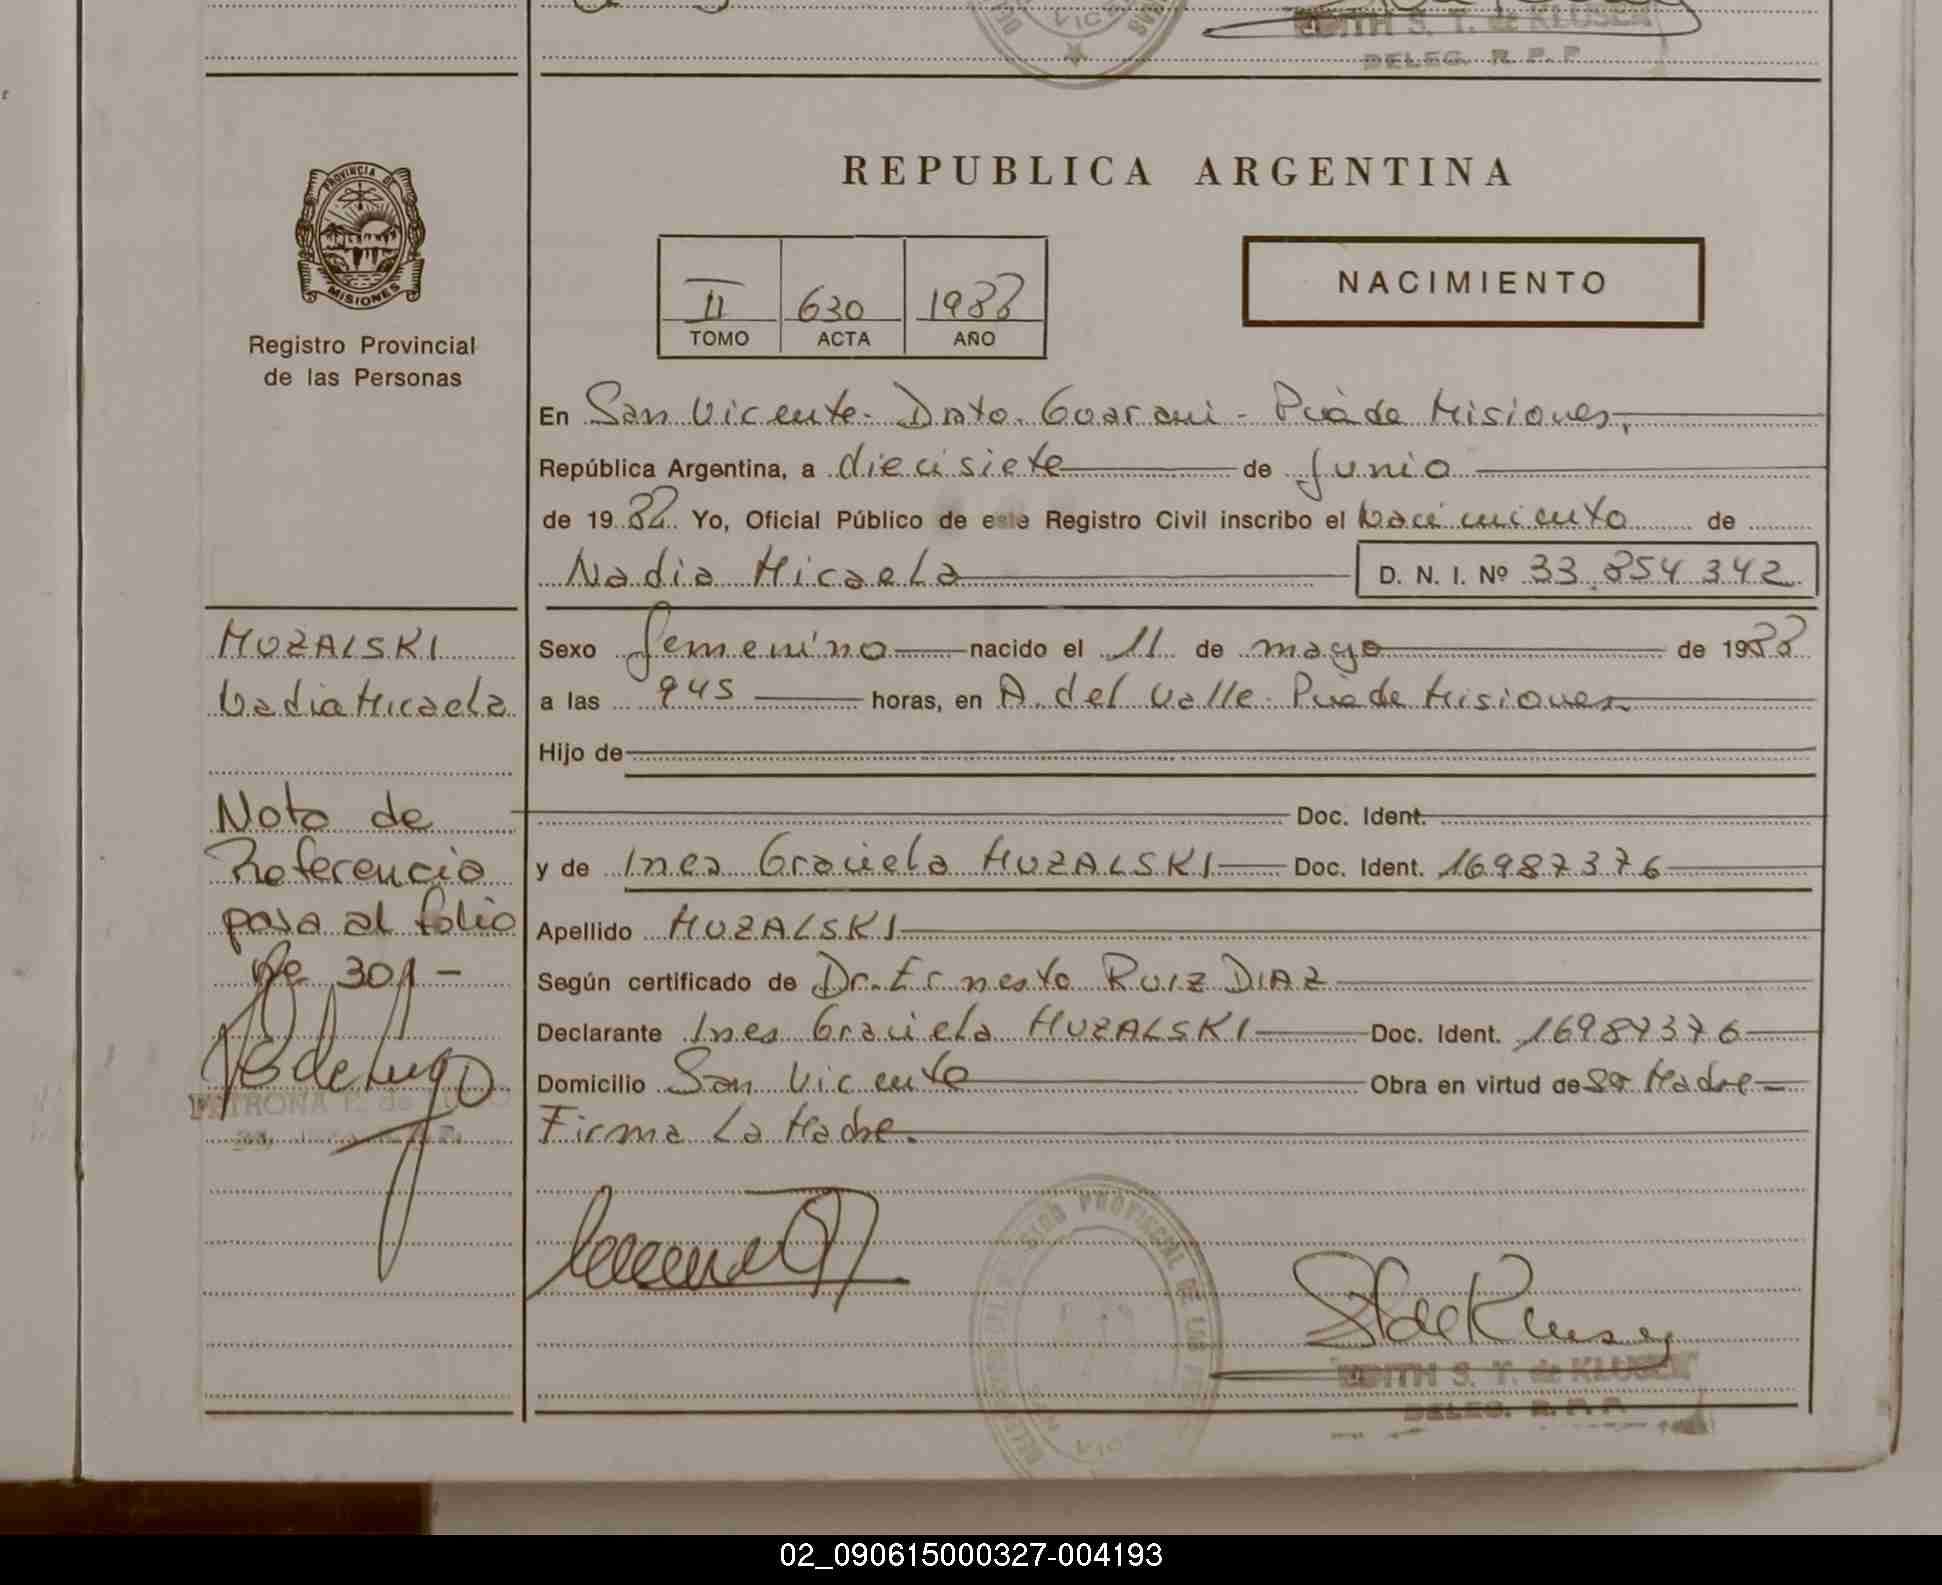 EDITH S. T. de KLUSEN
DELEG. R. P. P.
PROVINCIA DE
MISIONES
Registro Provincial
de las Personas
REPUBLICA ARGENTINA
II 630 1988
TOMO ACTA AÑO
NACIMIENTO
En San Vicente - Dpto. Guarani - Pcia de Misiones,
República Argentina, a diecisiete de Junio
de 1988 Yo, Oficial Público de este Registro Civil inscribo el Nacimiento de
Nadia Micaela D. N. I. Nº 33.854.342
MUZALSKI
Nadia Micaela
Nota de
Referencia
pasa al folio
Nº 301 -
PETRONA de LUGO
Sexo femenino nacido el 11 de mayo de 1988
a las 945 horas, en A. del Valle - Pcia de Misiones
Hijo de
Doc. Ident.
y de Ines Graciela MUZALSKI Doc. Ident. 16987376
Apellido MUZALSKI
Según certificado de Dr. Ernesto RUIZ DIAZ
Declarante Ines Graciela MUZALSKI Doc. Ident. 16987376
Domicilio San Vicente Obra en virtud de Ser Madre
Firma La Madre.
REGISTRO PROVINCIAL DE LAS
EDITH S. T. de KLUSEN
DELEG. R. P. P.
02_090615000327-004193